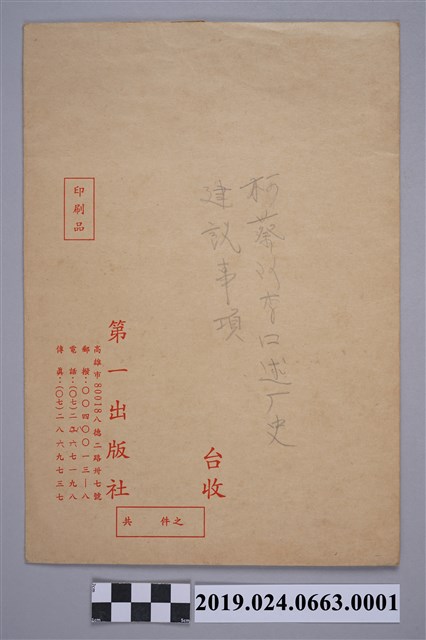 柯蔡阿李口述厂史
建議事項
台收
印刷品
第一出版社
高雄市80018八德二路卅七號
郵撥：〇〇四〇〇一三—八
電話：(〇七)二 六七一九八
傳真：(〇七)二八六九七三七
共　件　之
2019.024.0663.0001